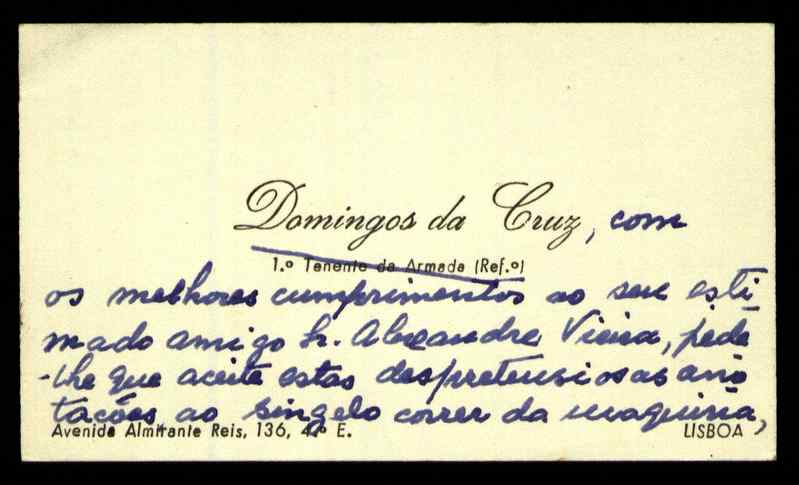 Domingos da Cruz, com
1.º Tenente da Armada (Ref.º)
os melhores cumprimentos ao seu esti-
mado amigo Sr. Alexandre Vieira, pede
-lhe que aceite estas despretensiosas ano
tações ao singelo correr da maquina,
Avenida Almirante Reis, 136, 4.º E. LISBOA